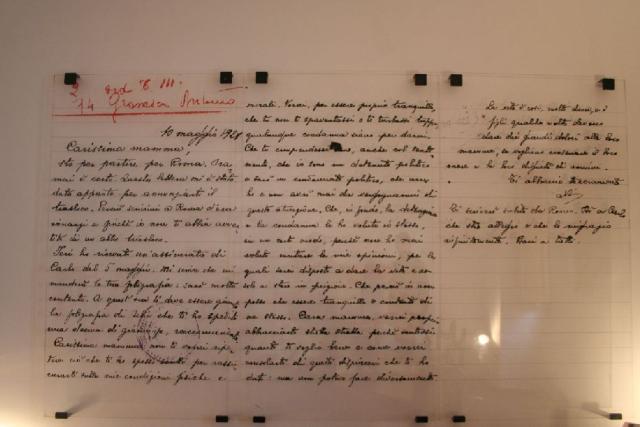 10 maggio 1928
Carissima mamma,
sto per partire per Roma. Ora-
mai è certo. Questa lettera mi è stata
data appunto per annunziarti il
trasloco. Perciò scrivimi a Roma d'ora
innanzi e finché io non ti abbia avver-
tita di un altro trasloco.
Ieri ho ricevuto un'assicurata di
Carlo del 5 maggio. Mi scrive che mi
manderà la tua fotografia: sarò molto
contento. A quest'ora ti deve essere giunta
la fotografia di Delio che ti ho spedito
una decina di giorni fa, raccomandata.
Carissima mamma, non ti vorrei ripe-
tere ciò che ti ho spesso scritto per rassi-
curarti sulle mie condizioni fisiche e
morali. Vorrei, per essere proprio tranquillo,
che tu non ti spaventassi o ti turbassi troppo
qualunque condanna siano per darmi.
Che tu comprendessi bene, anche col senti-
mento, che io sono un detenuto politico
e sarò un condannato politico, che non
ho e non avrò mai da vergognarmi di
questa situazione. Che, in fondo, la detenzione
e la condanna le ho volute io stesso,
in un certo modo, perché non ho mai
voluto mutare le mie opinioni, per le
quali sarei disposto a dare la vita e non
solo a stare in prigione. Che perciò io non
posso che essere tranquillo e contento di
me stesso. Cara mamma, vorrei proprio
abbracciarti stretta stretta perché sentissi
quanto ti voglio bene e come vorrei
consolarti di questi dispiaceri che ti ho
dato: ma non potevo fare diversamente.
La vita è così, molto dura, e i
figli qualche volta devono
dare dei grandi dolori alle loro
mamme, se vogliono conservare il loro
onore e la loro dignità di uomini.
Ti abbraccio teneramente
Nino
Ti scriverò subito da Roma. Di' a Carlo
che stia allegro e che lo ringrazio
infinitamente. Baci a tutti.